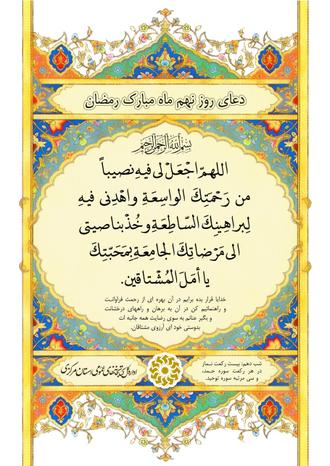 دعای روز نهم ماه مبارک رمضان
بسم الله الرحمن الرحیم
اللهم اجعل لی فیه نصیباً
من رحمتك الواسعة واهدنی فیه
لبراهینك الساطعة وخذ بناصیتی
الی مرضاتك الجامعة بمحبتك
یا أمل المشتاقین.
خدایا قرار بده برایم در آن بهره ای از رحمت فراوانت
و راهنمائیم کن در آن به برهان و راههای درخشانت
و بگیر عنانم به سوی رضایت همه جانبه ات
بدوستی خود ای آرزوی مشتاقان.
شب دهم: بیست رکعت نماز
در هر رکعت سوره حمد،
و سی مرتبه سوره توحید.
اداره کل کتابخانه‌های عمومی استان مرکزی